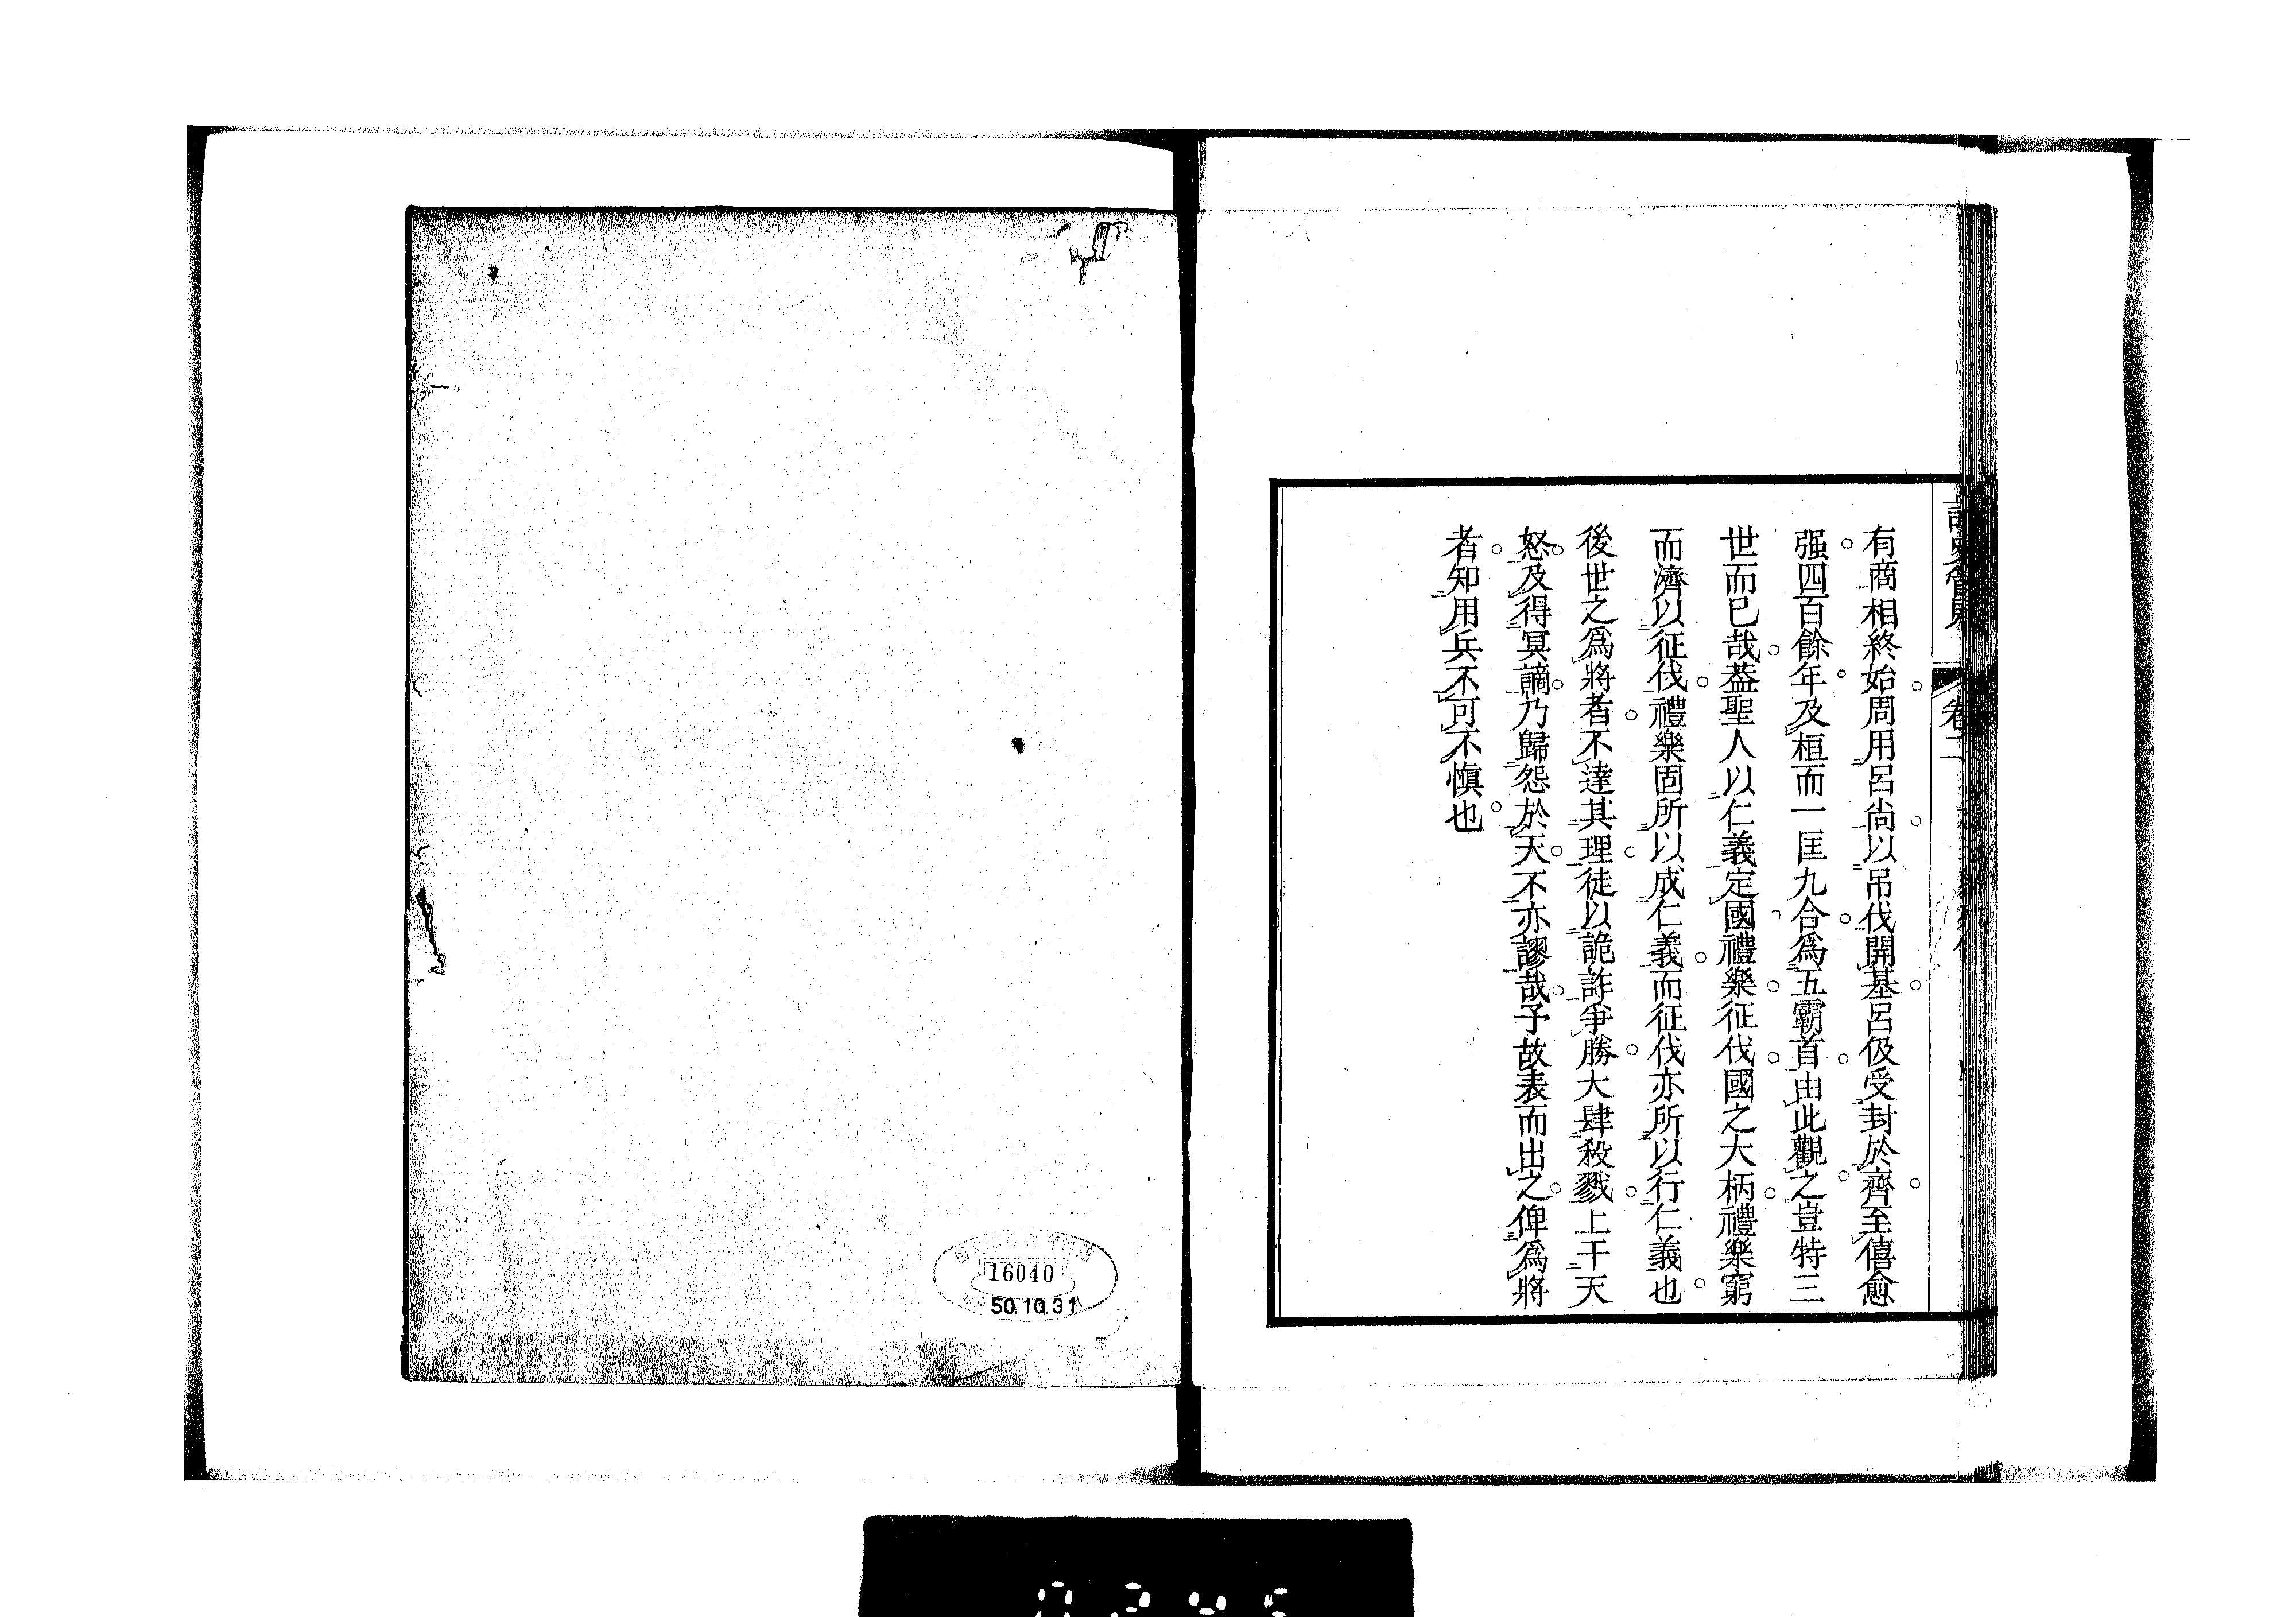 卷二
有商相終始周用呂尙以吊伐開基呂伋受封於齊至僖愈
强四百餘年及桓而一匡九合爲五霸首由此觀之豈特三
世而已哉葢聖人以仁義定國禮樂征伐國之大柄禮樂窮
而濟以征伐禮樂固所以成仁義而征伐亦所以行仁義也
後世之爲將者不達其理徒以詭詐爭勝大肆殺戮上干天
怒及得冥謫乃歸怨於天不亦謬哉予故表而出之俾爲將
者知用兵不可不愼也
16040
50.10.31